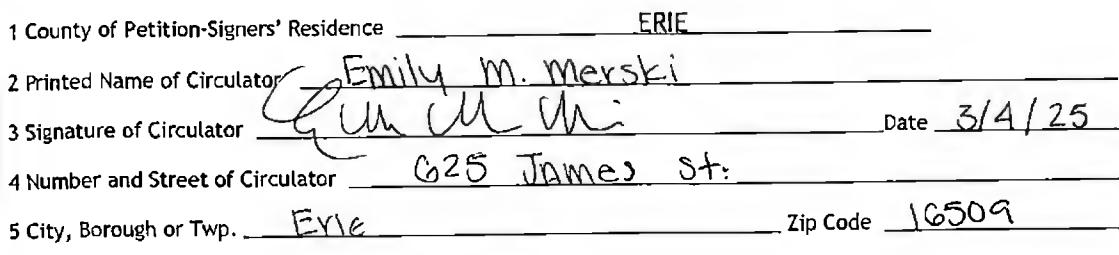 1 County of Petition-Signers' Residence ERIE
2 Printed Name of Circulator Emily M. Merski
3 Signature of Circulator Date 3/4/25
4 Number and Street of Circulator 625 James St.
5 City, Borough or Twp. Erie Zip Code 16509